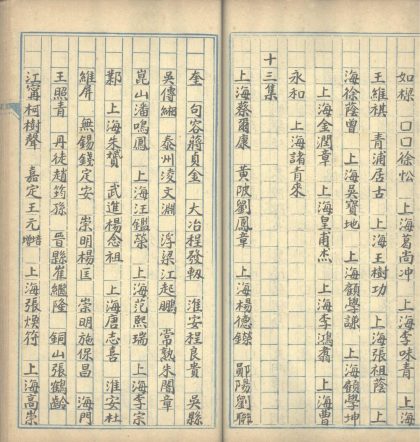 如椽　口口徐松　上海葛尚冲　上海李味青　上海
王維祺　青浦居古　上海王樹功　上海張祖蔭　上
海徐蔭曾　上海吳寶地　上海顧學謙　上海顧學坤
上海金潤章　上海皇甫杰　上海李鴻翥　上海曹
永和　上海諸青來
十三集
上海蔡爾康　黃陂劉鳳章　上海楊德鑅　鄖陽劉
奎　句容蔣貞金　大冶程發軔　淮安程良貴　吳縣
吳傳綱　泰州淩文淵　浮梁江起鵬　常熟朱闇章
崑山潘鳴鳳　上海汪鑑榮　上海范熙瑞　上海李宗
鄴　上海朱贇　武進楊念祖　上海唐志喜　淮安杜
維屏　無錫錢定安　崇明楊匡　崇明施保昌　海門
王照青　丹徒趙筠孫　晉縣崔繼隆　銅山張鶴齡
江甯柯樹聲　嘉定王元增　上海張煥符　上海高崇